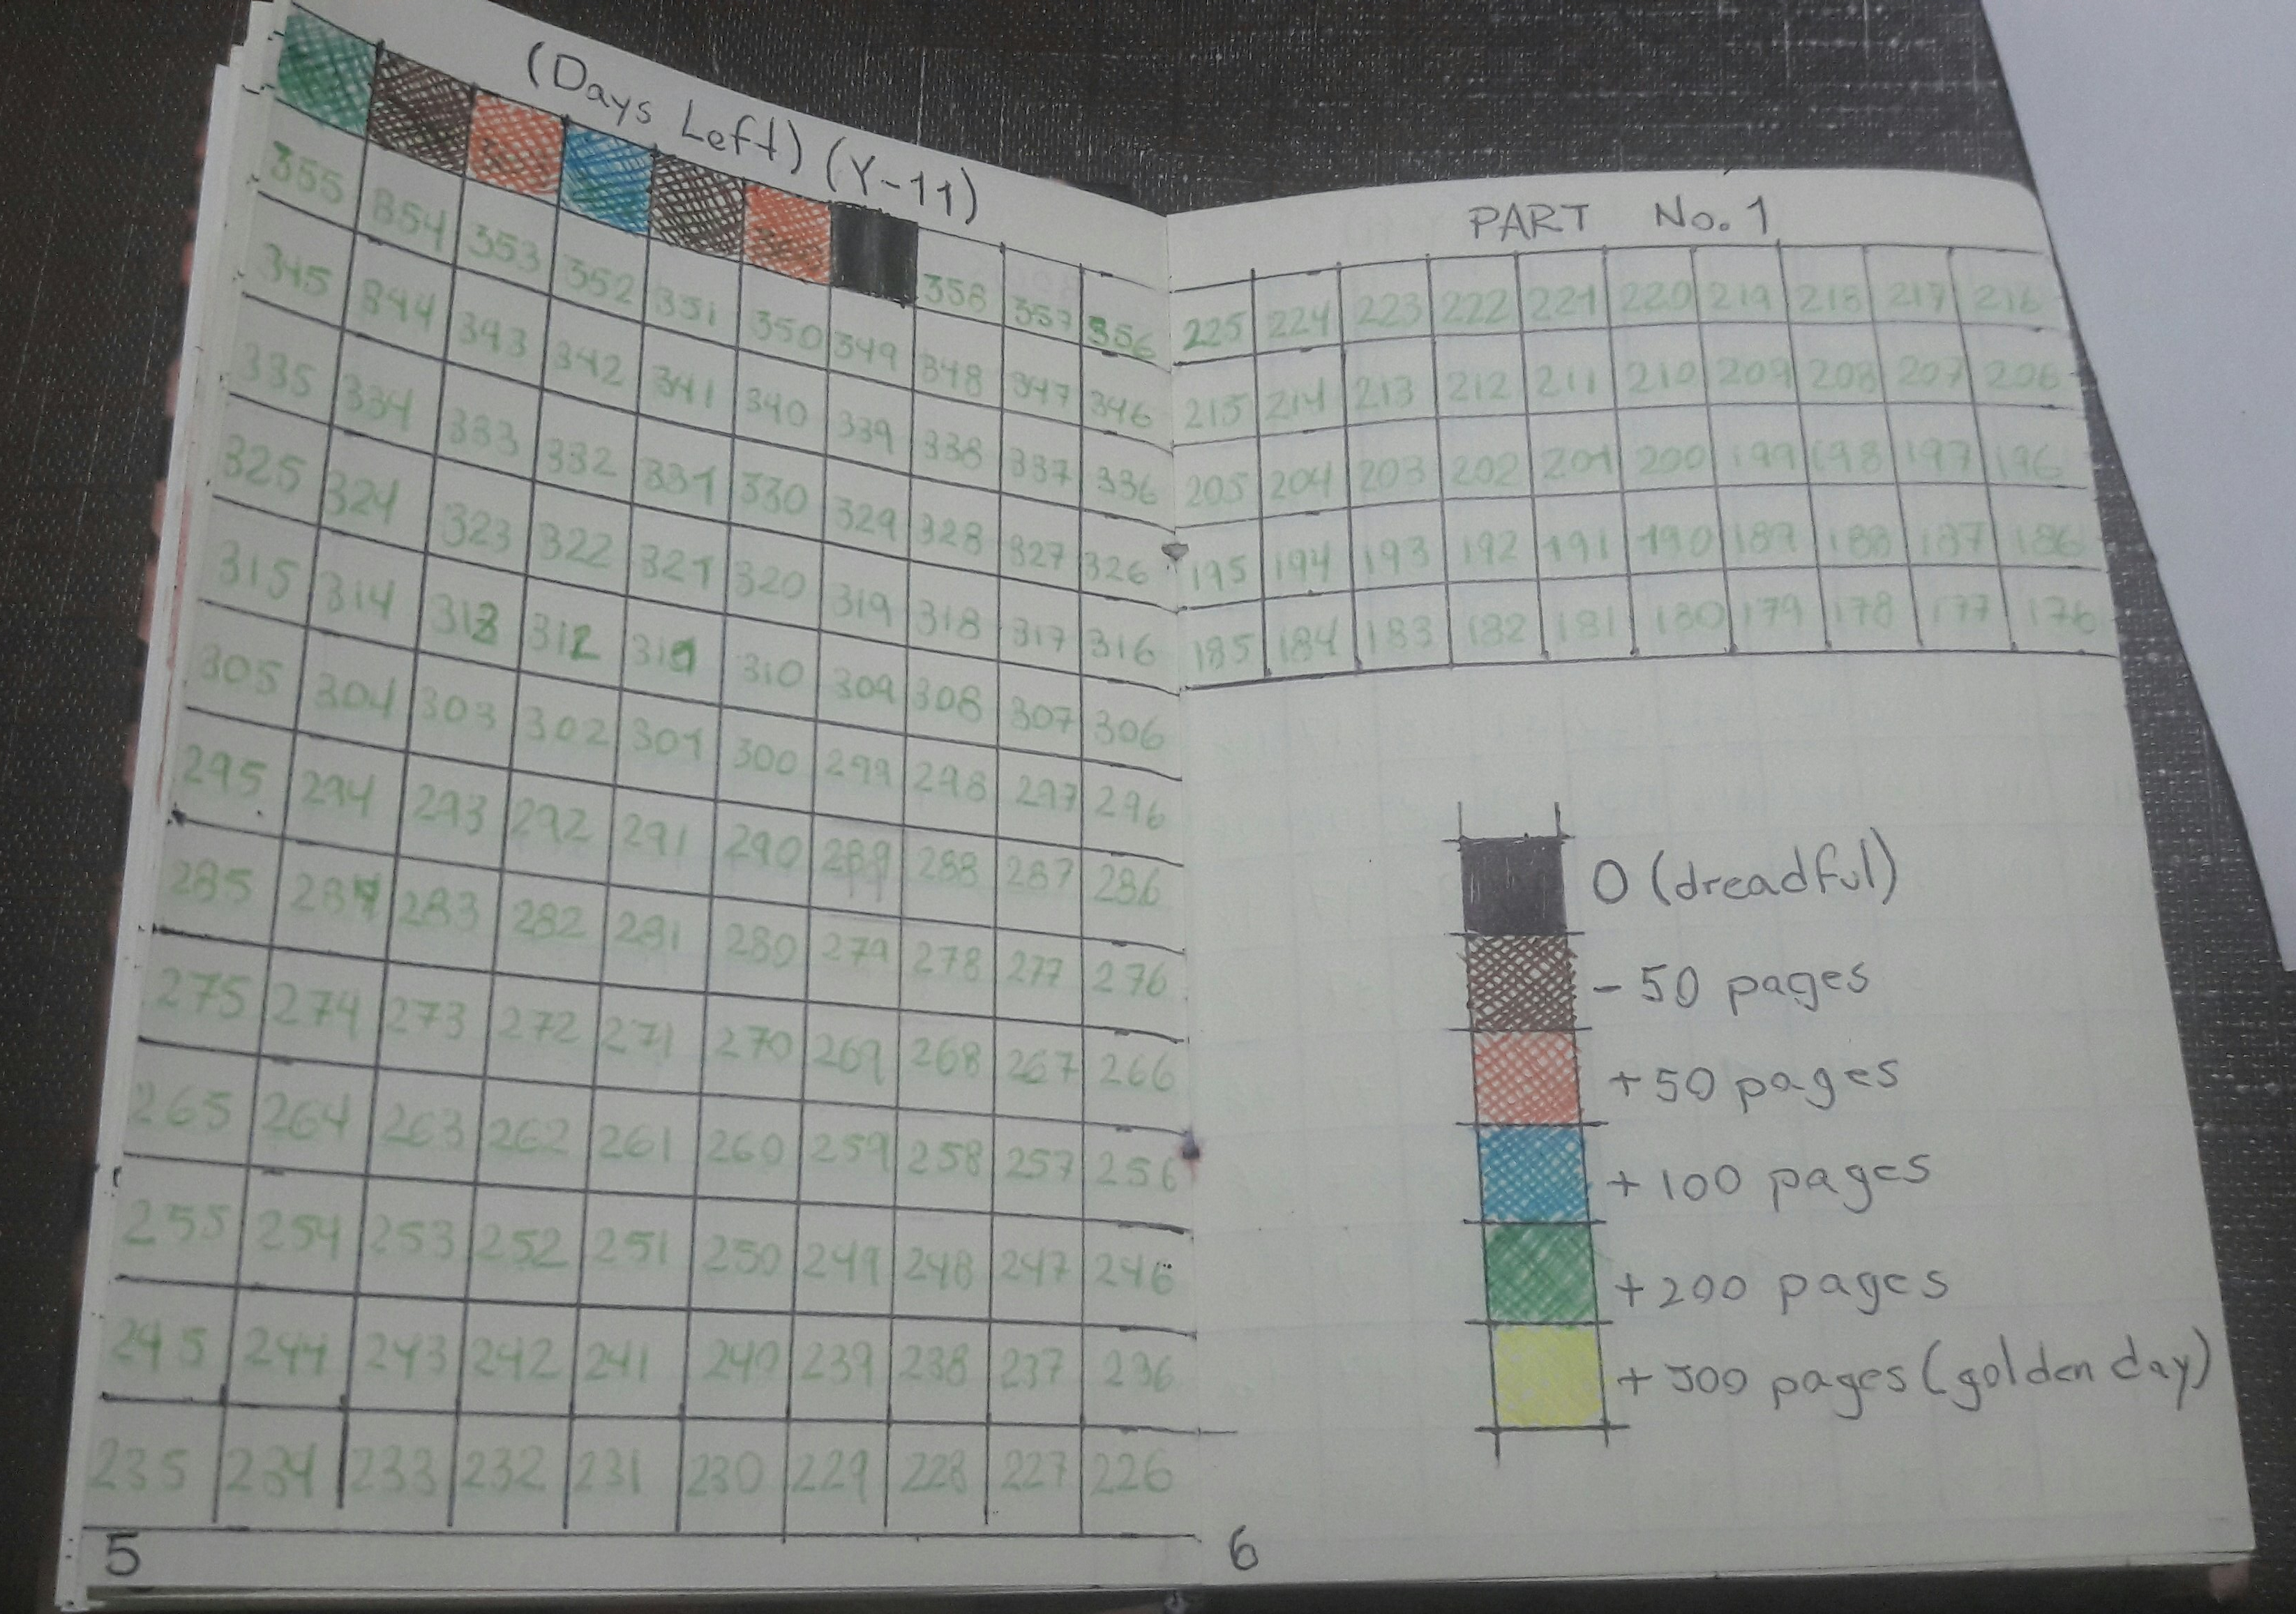 (Days Left) (Y-11)
358 357 356
355 354 353 352 351 350 349 348 347 346
345 344 343 342 341 340 339 338 337 336
335 334 333 332 331 330 329 328 327 326
325 324 323 322 321 320 319 318 317 316
315 314 313 312 311 310 309 308 307 306
305 304 303 302 301 300 299 298 297 296
295 294 293 292 291 290 289 288 287 286
285 284 283 282 281 280 279 278 277 276
275 274 273 272 271 270 269 268 267 266
265 264 263 262 261 260 259 258 257 256
255 254 253 252 251 250 249 248 247 246
245 244 243 242 241 240 239 238 237 236
235 234 233 232 231 230 229 228 227 226
5
PART No. 1
225 224 223 222 221 220 219 218 217 216
215 214 213 212 211 210 209 208 207 206
205 204 203 202 201 200 199 198 197 196
195 194 193 192 191 190 189 188 187 186
185 184 183 182 181 180 179 178 177 176
0 (dreadful)
- 50 pages
+50 pages
+ 100 pages
+200 pages
+ 300 pages (golden day)
6